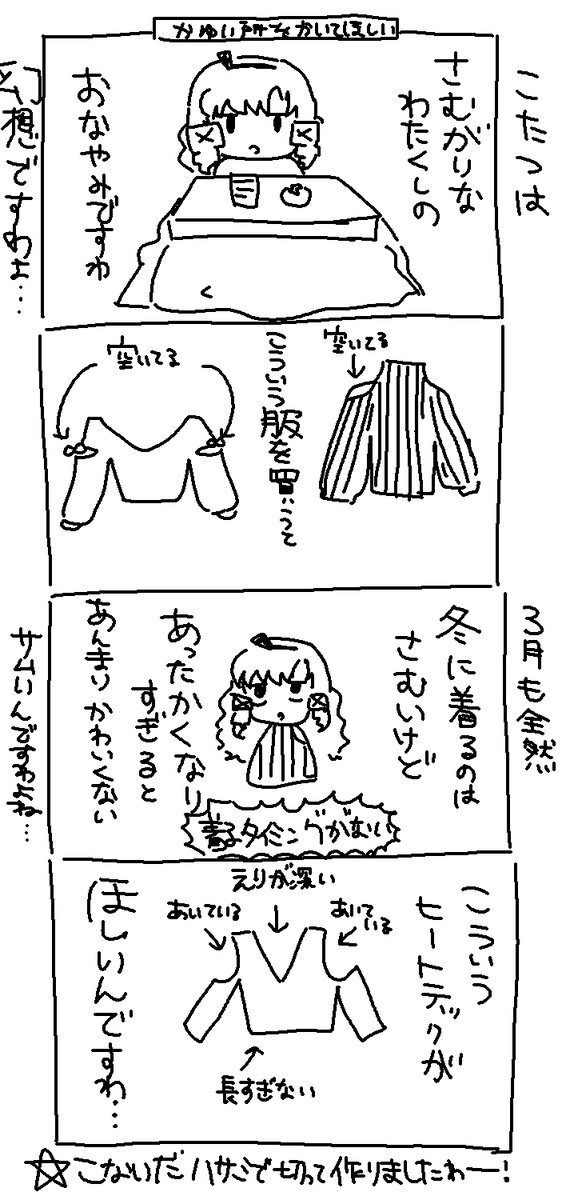 かゆい所をかいてほしい
こたつは
幻想ですわよ…
さむがりな
わたくしの
おなやみですわ
空いてる
こういう服を買って
空いてる
3月も全然
サムいんですわよね…
冬に着るのは
さむいけど
あったかくなり
すぎると
あんまりかわいくない
着るタイミングがない
こういう
ヒートテックが
えりが深い
あいている
あいて
いる
長すぎない
ほしいんですわ…
☆こないだハサミで切って作りましたわー!